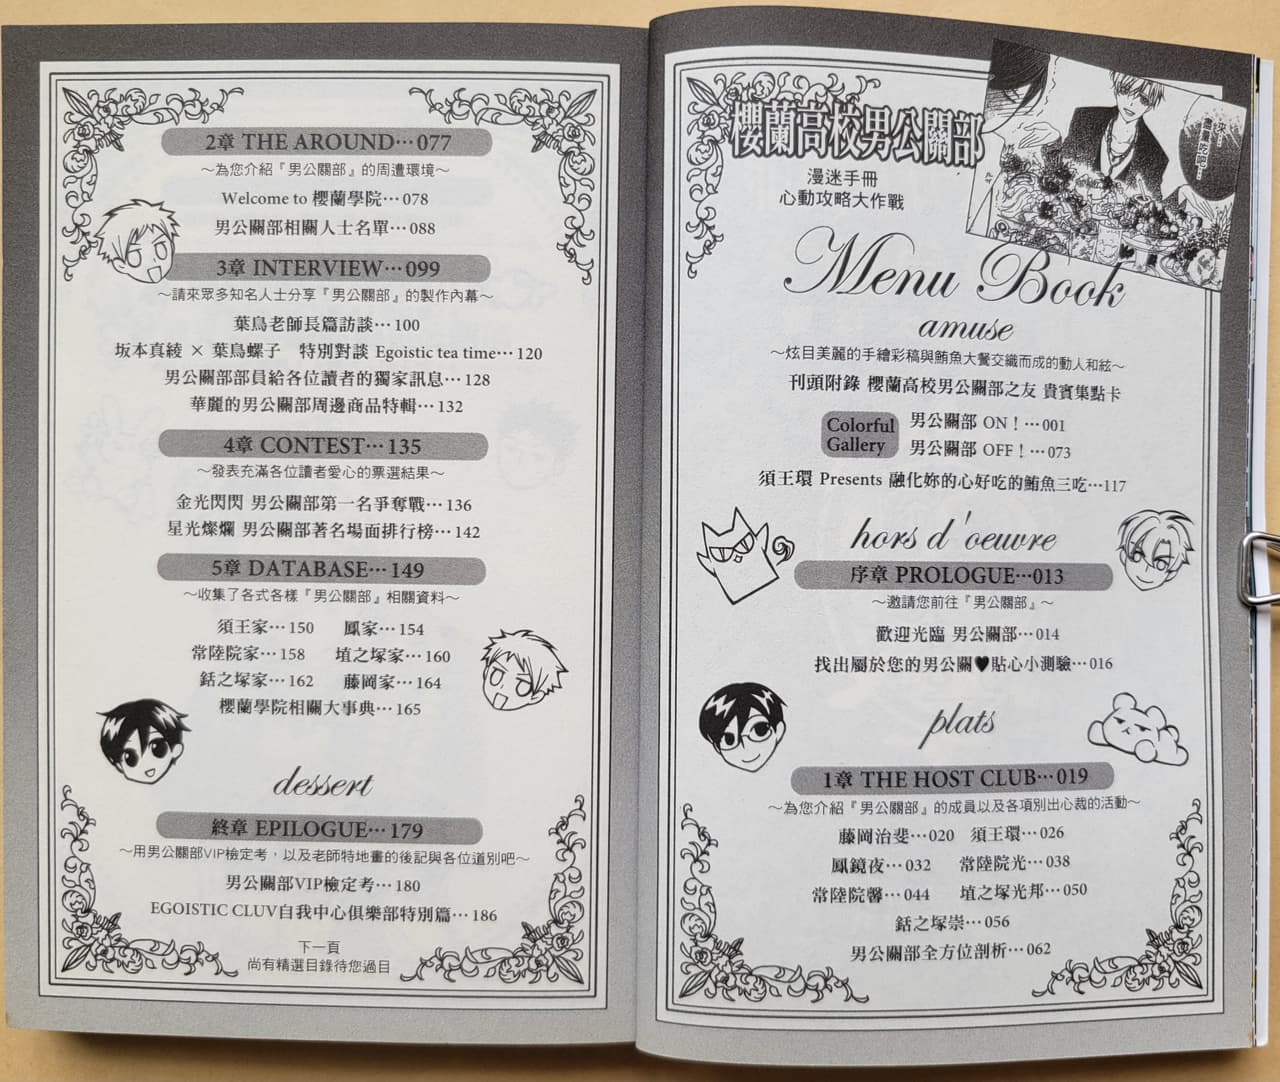 櫻蘭高校男公關部
漫迷手冊
心動攻略大作戰
來…
盡量吃吧…
Menu Book
amuse
～炫目美麗的手繪彩稿與鮪魚大餐交織而成的動人和絃～
刊頭附錄 櫻蘭高校男公關部之友 貴賓集點卡
Colorful Gallery
男公關部 ON！…001
男公關部 OFF！…073
須王環 Presents 融化妳的心好吃的鮪魚三吃…117
hors d'oeuvre
序章 PROLOGUE…013
～邀請您前往『男公關部』～
歡迎光臨 男公關部…014
找出屬於您的男公關♥貼心小測驗…016
plats
1章 THE HOST CLUB…019
～為您介紹『男公關部』的成員以及各項別出心裁的活動～
藤岡治斐…020 須王環…026
鳳鏡夜…032 常陸院光…038
常陸院馨…044 埴之塚光邦…050
銛之塚崇…056
男公關部全方位剖析…062
2章 THE AROUND…077
～為您介紹『男公關部』的周遭環境～
Welcome to 櫻蘭學院…078
男公關部相關人士名單…088
3章 INTERVIEW…099
～請來眾多知名人士分享『男公關部』的製作內幕～
葉鳥老師長篇訪談…100
坂本真綾 × 葉鳥螺子 特別對談 Egoistic tea time…120
男公關部部員給各位讀者的獨家訊息…128
華麗的男公關部周邊商品特輯…132
4章 CONTEST…135
～發表充滿各位讀者愛心的票選結果～
金光閃閃 男公關部第一名爭奪戰…136
星光燦爛 男公關部著名場面排行榜…142
5章 DATABASE…149
～收集了各式各樣『男公關部』相關資料～
須王家…150 鳳家…154
常陸院家…158 埴之塚家…160
銛之塚家…162 藤岡家…164
櫻蘭學院相關大事典…165
dessert
終章 EPILOGUE…179
～用男公關部VIP檢定考，以及老師特地畫的後記與各位道別吧～
男公關部VIP檢定考…180
EGOISTIC CLUV自我中心俱樂部特別篇…186
下一頁
尚有精選目錄待您過目